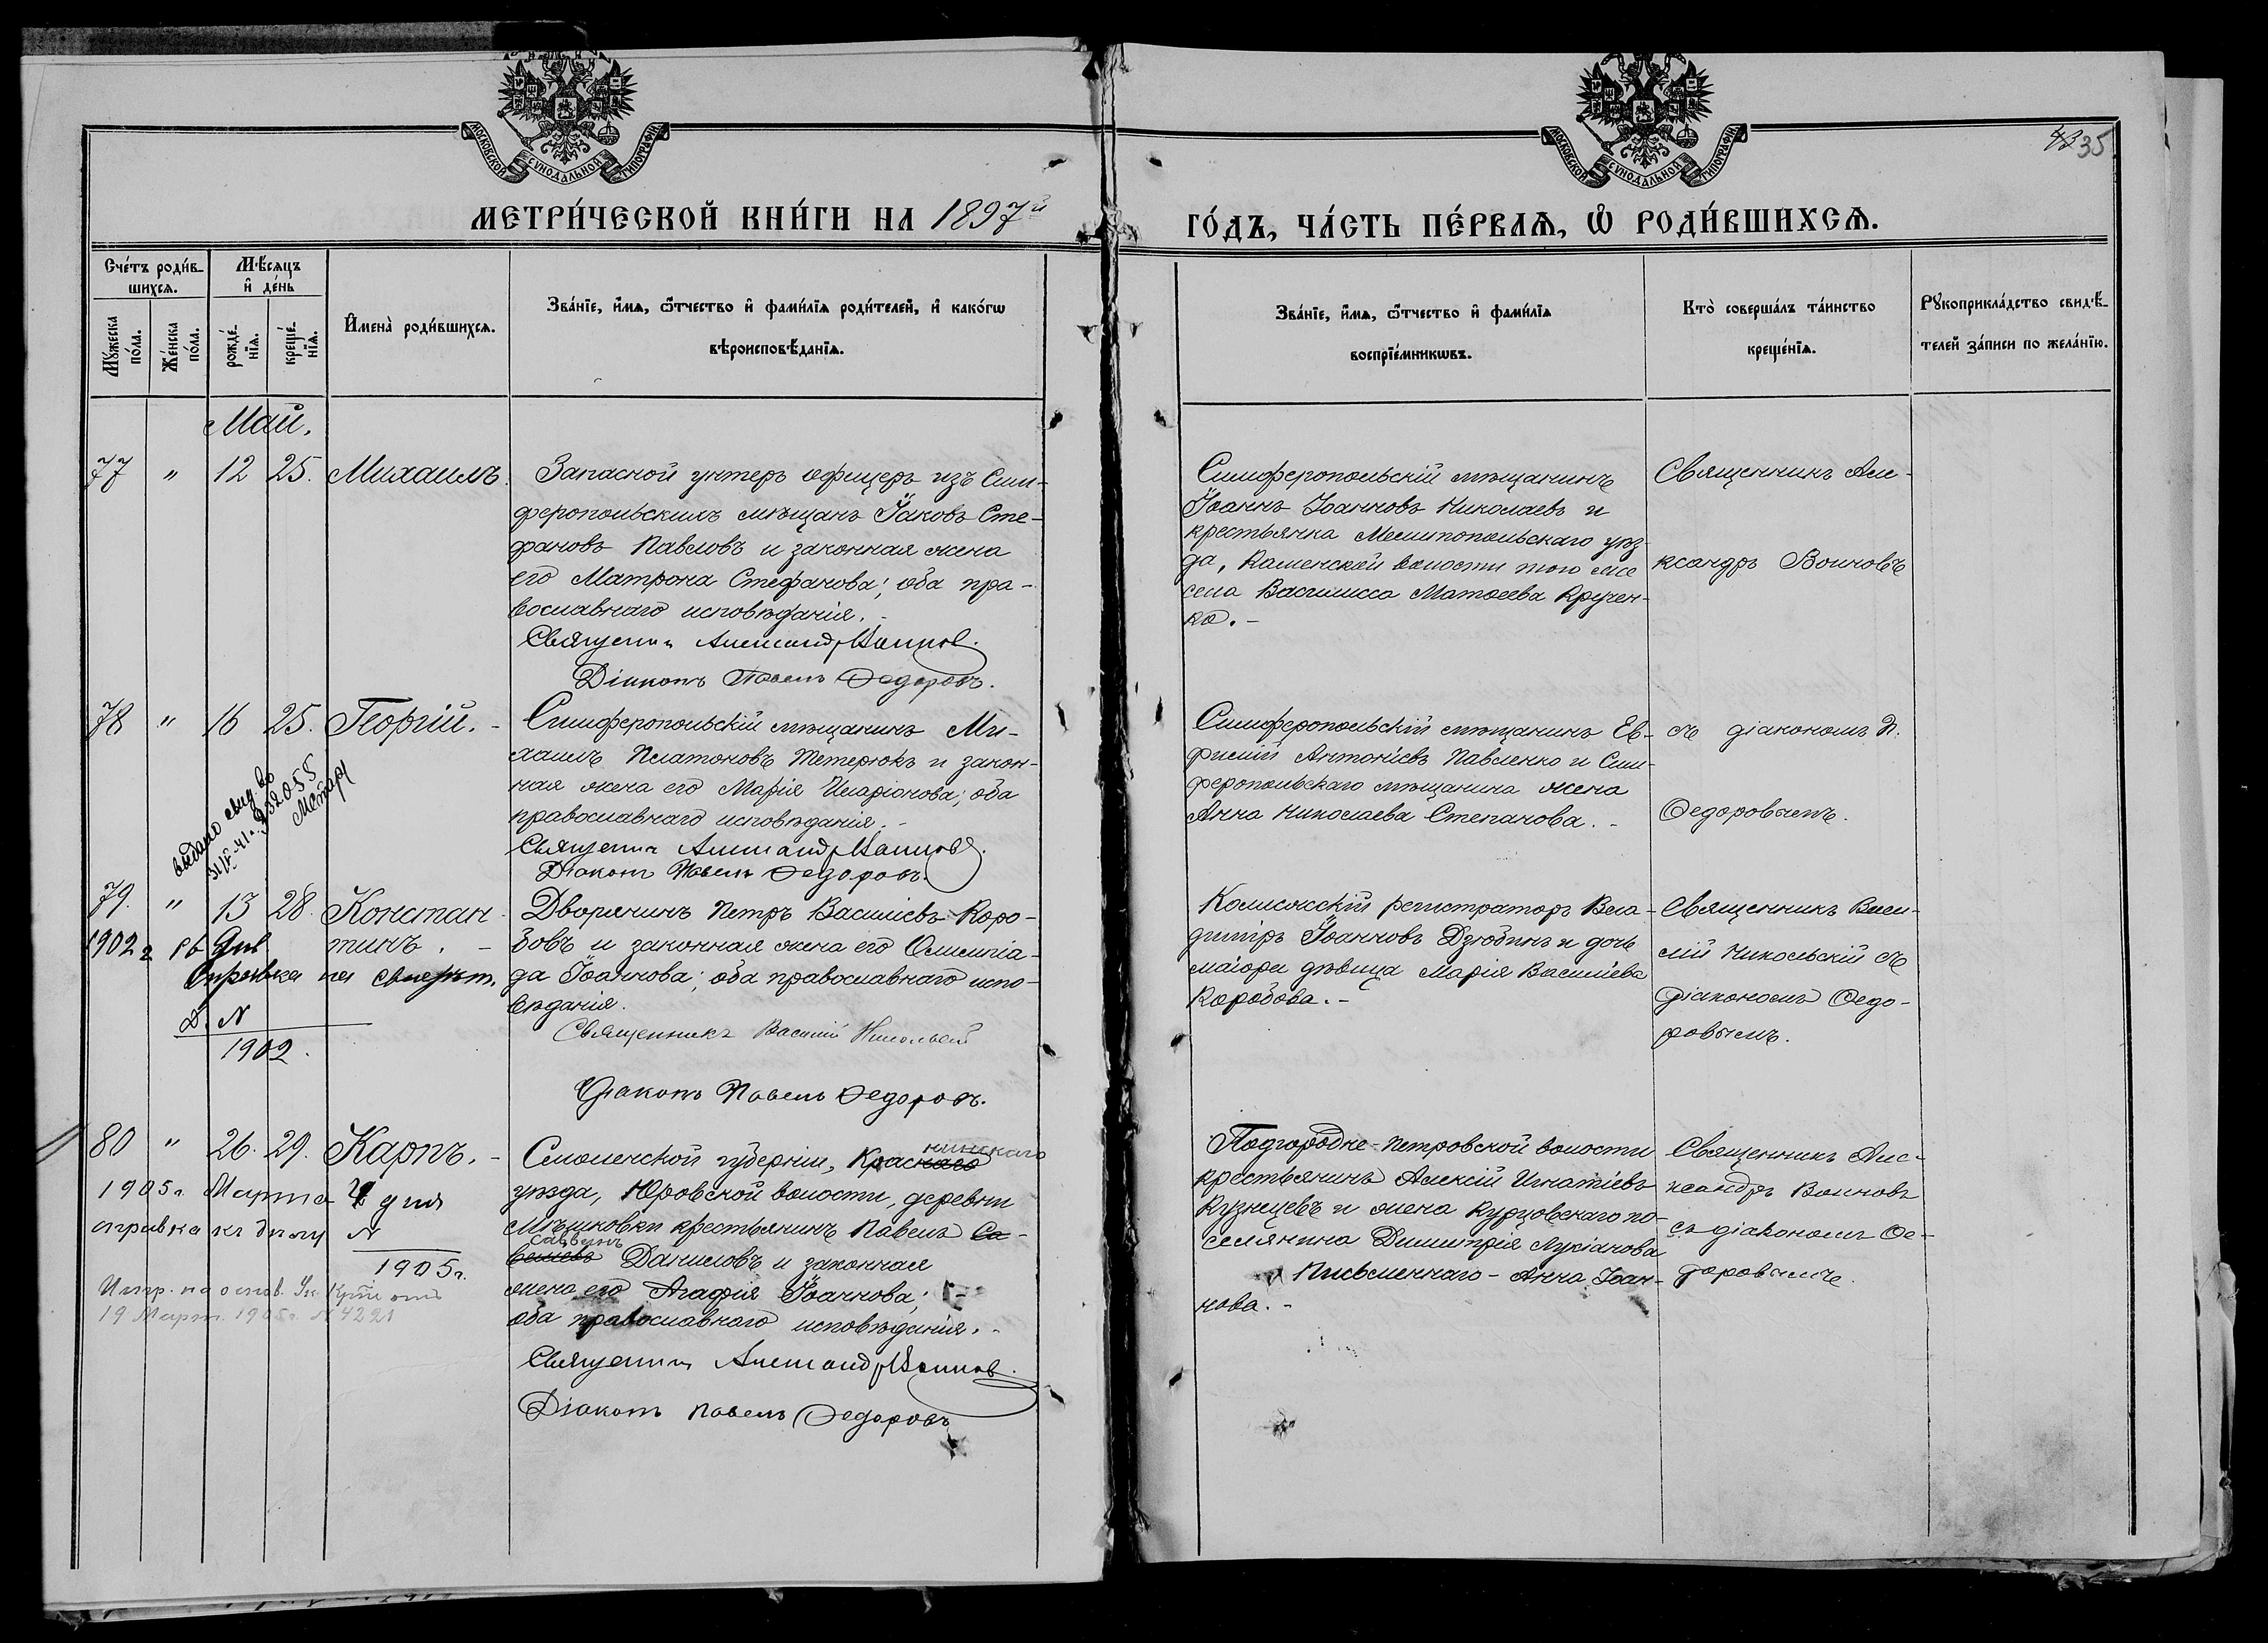 МОСКОВСКОЙ СѴНОДАЛЬНОЙ ТИПОГРАФІИ
МОСКОВСКОЙ СѴНОДАЛЬНОЙ ТИПОГРАФІИ
43 35
МЕТРИ́ЧЕСКОЙ КНИ́ГИ НА 1897й
ГО́ДЪ, ЧА́СТЬ ПЕ́РВАѦ, Ѡ РОДИ́ВШИХСѦ.
Сче́тъ роди́в-
шихсѧ.
Мѣ́сѧцъ
и де́нь
Мꙋ́жеска
по́ла.
Же́нска
по́ла.
рожде́-
нїѧ.
креще́-
нїѧ.
Имена̀ роди́вшихсѧ.
Зва́нїе, и́мѧ, ѻ́тчество и фами́лїѧ роди́телей, и како́гѡ
вѣроисповѣ́данїѧ.
Зва́нїе, и́мѧ, ѻ́тчество и фами́лїѧ
воспрїе́мникѡвъ.
Кто̀ соверша́лъ та́инство
креще́нїѧ.
Рꙋкоприкла́дство свидѣ́-
телей за́писи по жела́нїю.
Май.
77 " 12 25. Михаилъ.
Запасной унтеръ офицеръ изъ Сим-
феропольскихъ мѣщанъ Іаковъ Сте-
фановъ Павловъ и законная жена
его Матрона Стефанова; оба пра-
вославнаго исповѣданія. -
Священникъ Александръ Воиновъ.
Діаконъ Павелъ Ѳедоровъ.
Симферопольскій мѣщанинъ
Іоаннъ Іоанновъ Николаевъ и
крестьянка Мелитопольскаго уѣз-
да, Каменской волости того же
села Василисса Матѳеева Кручен-
ко. -
Священникъ Але-
ксандръ Воиновъ
78 " 16 25. Георгій. -
Симферопольскій мѣщанинъ Ми-
хаилъ Платоновъ Тетерюкъ и закон-
ная жена его Марія Иларіонова; оба
православнаго исповѣданія. -
Священникъ Александръ Воиновъ.
Діаконъ Павелъ Ѳедоровъ.
Симферопольскій мѣщанинъ Ев-
фимій Антоніевъ Павленко и Сим-
феропольскаго мѣщанина жена
Анна Николаева Степанова. -
съ діакономъ П.
Ѳедоровымъ.
выдано свид.
79. " 13 28. Констан-
тинъ. -
Дворянинъ Петръ Василіевъ Коро-
бовъ и законная жена его Олимпіа-
да Іоаннова; оба православнаго испо-
вѣданія.
Священникъ Василій Никольскій
Діаконъ Павелъ Ѳедоровъ.
Колежскій регистраторъ Вла-
димиръ Іоанновъ Дзюбинъ и дочь
маіора дѣвица Марія Василіева
Коробова. -
Священникъ Васи-
лій Никольскій съ
діакономъ Ѳедо-
ровымъ.
1902 г.
Справка
Д. N
1902.
80 " 26. 29. Карпъ. -
Смоленской губерніи, Краснаго нинскаго
уѣзда, Юровской волости, деревни
Мѣшковки крестьянинъ Павелъ Са-
велievъ Саввинъ Даниловъ и законная
жена его Агафія Іоаннова;
оба православнаго исповѣданія. -
Священникъ Александръ Воиновъ.
Діаконъ Павелъ Ѳедоровъ
Подгородне-Петровской волости
крестьянинъ Алексій Игнатіевъ
Кузнецовъ и жена Курцовскаго по-
селянина Димитрія Лукіанова
Письменнаго - Анна Іоан-
нова. -
Священникъ Але-
ксандръ Воиновъ
съ діакономъ Ѳе-
доровымъ.
1905 г. Марта 4 дня
справка къ дѣлу N
1905 г.
19 Март. 1905 г. N 4221